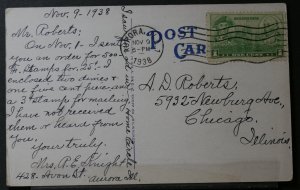 Nov. 9-1938
Mr. Roberts:
On Nov. 1- I sent
you an order for 500
stamps for 25¢. I
enclosed two dimes and
one five cent piece, and
a 3¢ stamp for mailing.
I have not received
them or heard from
you.
Yours truly.
Mrs. P.E. Knight
428. Avon St.
Aurora Ill.
POST
CARD
AURORA
NOV 9
5-PM
1938
A. D. Roberts,
5932 Newburg Ave,
Chicago,
Illinois.